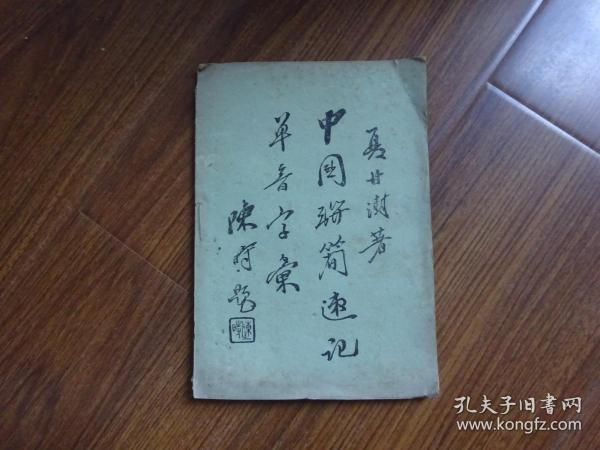 甘澍著
中國聯简速记
单音字彙
陳 题
孔夫子旧書网
www.kongfz.com